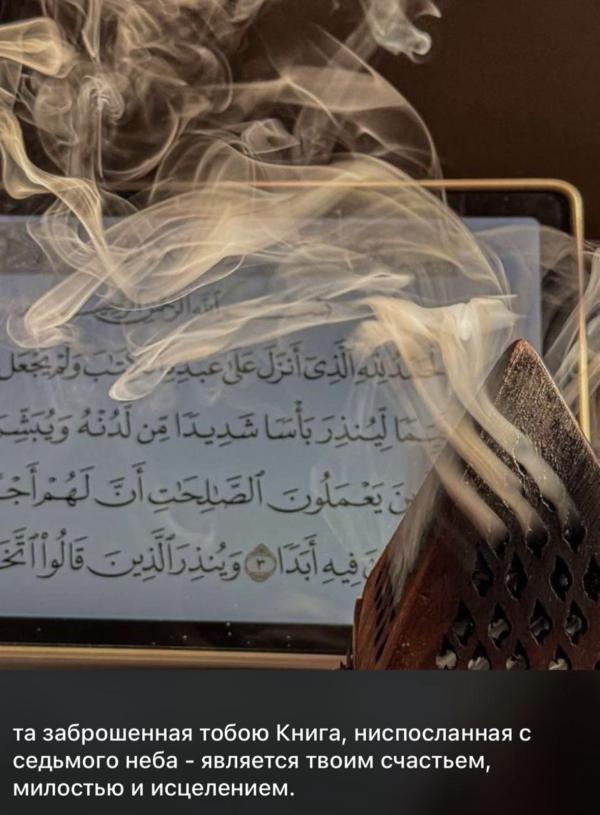 ٱللَّهِ ٱلرَّحْمَٰنِ
ٱلَّذِىٓ أَنزَلَ عَلَىٰ عَبْدِهِ وَلَمْ يَجْعَل
لِّيُنذِرَ بَأْسًا شَدِيدًا مِّن لَّدُنْهُ وَيُبَشِّرَ
يَعْمَلُونَ ٱلصَّٰلِحَٰتِ أَنَّ لَهُمْ
فِيهِ أَبَدًا ٣ وَيُنذِرَ ٱلَّذِينَ قَالُوا۟
та заброшенная тобою Книга, ниспосланная с
седьмого неба - является твоим счастьем,
милостью и исцелением.